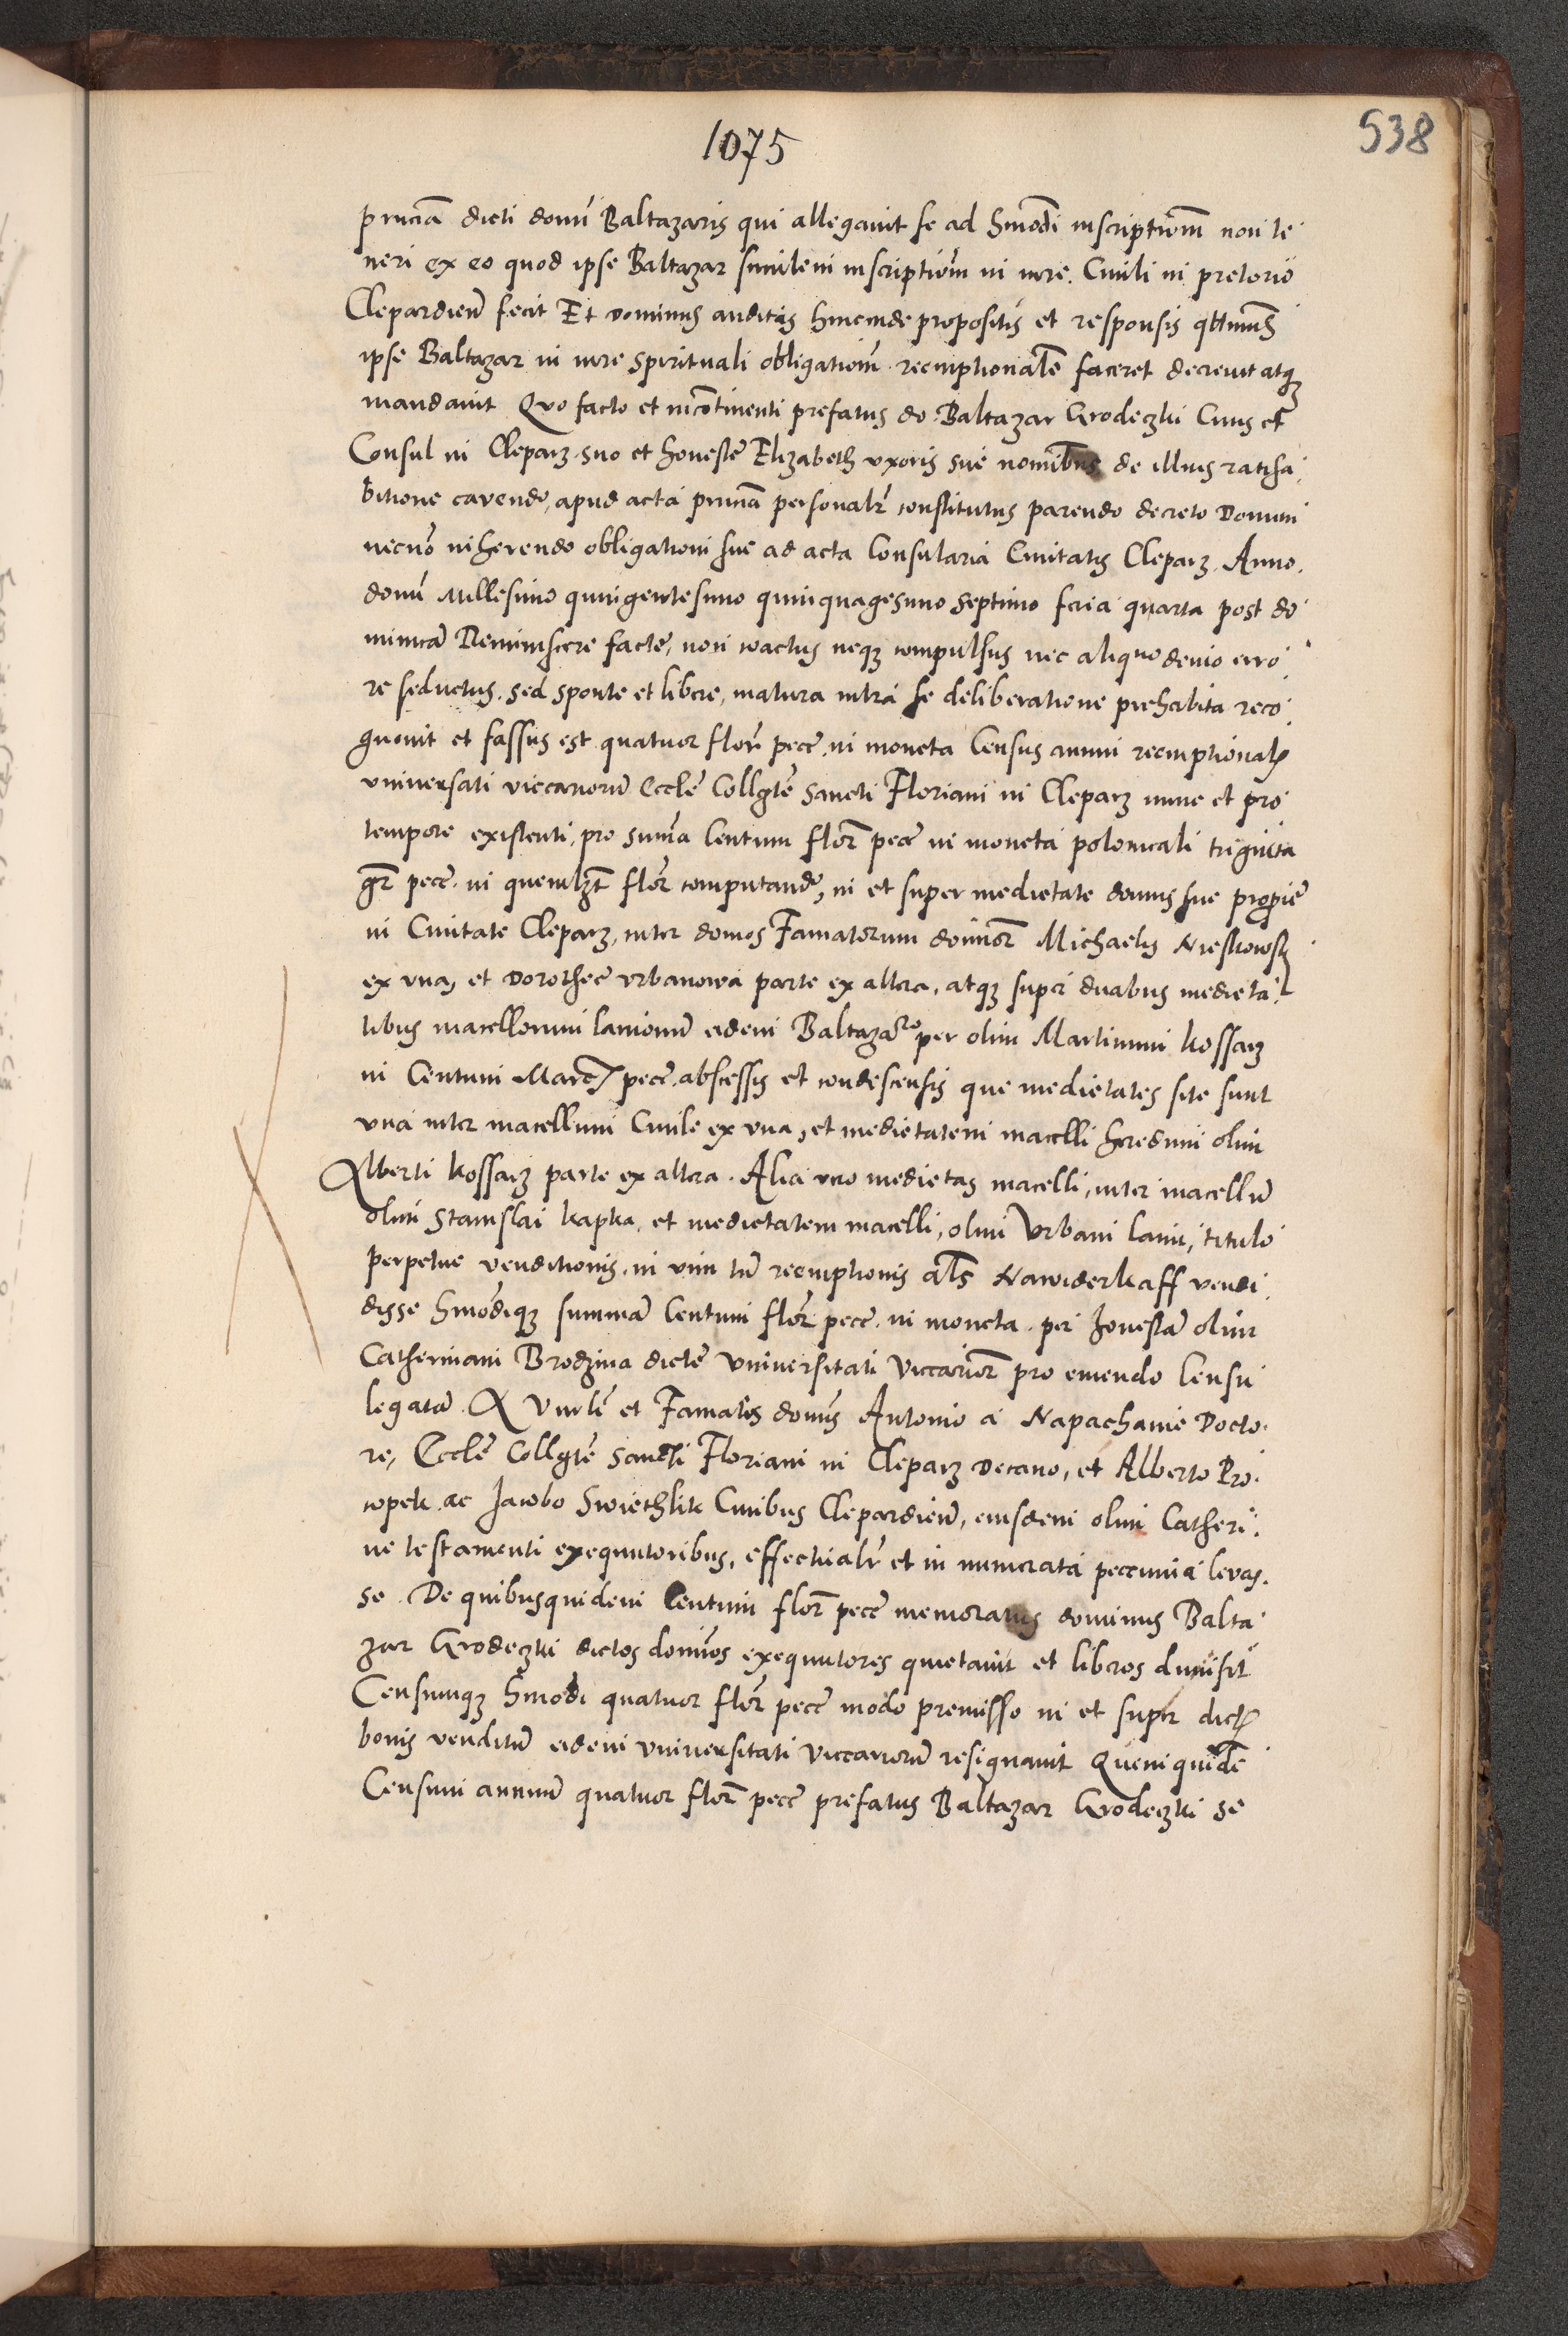 1075
538
pñciã dicti domĩ Baltazaris qui allegavit se ad hmõdi inscriptioñm non te
neri ex eo quod ipse Baltazar similem inscriptioñm in iure Civili in pretorio
Clepardieñ fecit Et Dominus auditis hincinde propositis et responsis qttinus
ipse Baltazar in iure spirituali obligatioñm reemptionalẽ faceret decrevit atqz
mandavit Quo facto et incõtinenti prefatus do. Baltazar Grodeczki Civis et
Consul in Cleparz suo et honestẽ Elizabeth uxoris sue nominibus de illius ratiha
bitione cavendo, apud acta pñciã personalr̃ constitutus parendo decreto Domini
necnõ inherendo obligationi sue ad acta Consularia Civitatis Cleparz Anno
domĩ Millesimo quingentesimo quinquagesimo septimo feria quarta post do
minicã Reminiscere factẽ, non coactus neqz compulsus nec aliquo devio erro
re seductus, sed sponte et libere, matura intra se deliberatione prehabita reco
gnovit et fassus est quatuor flor̃ pecc̃ in moneta Census annui reemptional
universati viccariorũ Ecclẽ Collgtẽ Sancti Floriani in Cleparz nunc et pro
tempore existenti, pro sum̃a Centum flor̃ pecc̃ in moneta polonicali triginta
gr̃ pecc̃ in quemlzt flor̃ computando, in et super medietate domus sue proprie
in Civitate Cleparz, inter domos Famatorum domnor̃ Michaelis
ex una, et Dorothee Urbanowa parte ex altera, atqz super duabus medieta
tibus macellorum lanionũ eidem Baltazaro per olim Martinum Kossarz
in Centum Marc pecc̃ abscessis et condescensis que medietates site sunt
una inter macellum Civile ex una, et medietatem macelli heredum olim
Alberti Kossarz parte ex altera. Alia vero medietas macelli, inter macellũ
olim Stanislai Kapka, et medietatem macelli, olim Urbani lanii, titulo
perpetue venditionis, in vim tñ reemptionis als̃ Nawiderkaff vendi
disse hmõdiqz summã Centum flor̃ pecc̃ in moneta per honestã olim
Catherinam Brodzina dictẽ Universitati Viccarior̃ pro emendo Censu
legatã A Virlĩ et Famatis domĩs Antonio a Napachanie Docto
re, Ecclẽ Collgtẽ Sancti Floriani in Cleparz Decano, et Alberto Pro
copek ac Jacobo Swiethlik Civibus Clepardieñ, eiusdem olim Catheri
ne testamenti exequutoribus, effectualr̃ et in numerata peccunia levas
se. De quibusquidem Centum flor̃ pecc̃ memoratus dominus Balta
zar Grodeczki dictos domĩos exequutores quietavit et liberos dimisit
Censumqz hmõdi quatuor flor̃ pecc̃ modo premisso in et super dict
bonis venditũ eidem universitati viccariorũ resignavit Quemquidẽ
Censum annuũ quatuor flor̃ pecc̃ prefatus Baltazar Grodeczki se